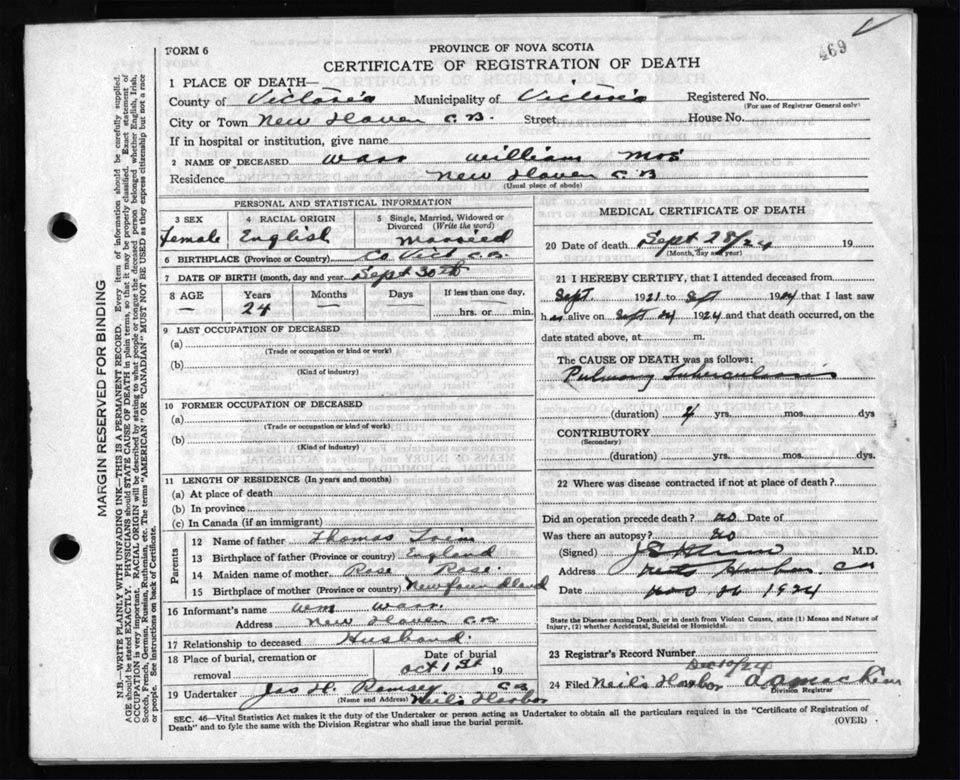 469
FORM 6
PROVINCE OF NOVA SCOTIA
CERTIFICATE OF REGISTRATION OF DEATH
1 PLACE OF DEATH—
County of Victoria Municipality of Victoria Registered No.
(For use of Registrar General only)
City or Town New Haven C.B. Street, House No.
If in hospital or institution, give name
2 NAME OF DECEASED Warr William Mrs
Residence New Haven C B
(Usual place of abode)
PERSONAL AND STATISTICAL INFORMATION
3 SEX Female
4 RACIAL ORIGIN English
5 Single, Married, Widowed or Divorced (Write the word) Married
6 BIRTHPLACE (Province or Country) Co Vict C.B.
7 DATE OF BIRTH (month, day and year) Sept 30th
8 AGE — Years 24 Months — Days — If less than one day, hrs. or min.
9 LAST OCCUPATION OF DECEASED
(a)
(Trade or occupation or kind or work)
(b)
(Kind of industry)
10 FORMER OCCUPATION OF DECEASED
(a)
(Trade or occupation or kind of work)
(b)
(Kind of industry)
11 LENGTH OF RESIDENCE (In years and months)
(a) At place of death
(b) In province
(c) In Canada (if an immigrant)
Parents
12 Name of father Thomas
13 Birthplace of father (Province or country) England
14 Maiden name of mother Rose Rose
15 Birthplace of mother (Province or country) Newfoundland
16 Informant's name Wm Warr
Address New Haven C.B
17 Relationship to deceased Husband
18 Place of burial, cremation or removal
Date of burial Oct 1st 19
19 Undertaker Jas H. Ramsey C B
(Name and Address) Neil's Harbor
MEDICAL CERTIFICATE OF DEATH
20 Date of death Sept 28/24 19
(Month, day and year)
21 I HEREBY CERTIFY, that I attended deceased from
Sept. 1921 to Sept 1924 that I last saw
h alive on Sept 24 1924 and that death occurred, on the
date stated above, at m.
The CAUSE OF DEATH was as follows:
Pulmonary Tuberculosis
(duration) 4 yrs. mos. dys
CONTRIBUTORY
(Secondary)
(duration) yrs. mos. dys.
22 Where was disease contracted if not at place of death?
Did an operation precede death? no Date of
Was there an autopsy? no
(Signed) M.D.
Address Neils Harbor CB
Date 1924
State the Disease causing Death, or in death from Violent Causes, state (1) Means and Nature of Injury, (2) whether Accidental, Suicidal or Homicidal.
23 Registrar's Record Number
Dec 10/24
24 Filed Neil's Harbor
Division Registrar
SEC. 46—Vital Statistics Act makes it the duty of the Undertaker or person acting as Undertaker to obtain all the particulars required in the "Certificate of Registration of
Death" and to fyle the same with the Division Registrar who shall issue the burial permit.
(OVER)
MARGIN RESERVED FOR BINDING
N.B.—WRITE PLAINLY WITH UNFADING INK—THIS IS A PERMANENT RECORD. Every item of information should be carefully supplied.
AGE should be stated EXACTLY. PHYSICIANS should STATE CAUSE OF DEATH in plain terms, so that it may be properly classified. Exact statement of
OCCUPATION is very important. RACIAL ORIGIN will be described by stating to what people or tongue the deceased person belonged whether English, Irish,
Scotch, French, German, Russian, Ruthenian, etc. The terms "AMERICAN" OR "CANADIAN" MUST NOT BE USED as they express citizenship but not a race
or people. See instructions on back of Certificate.